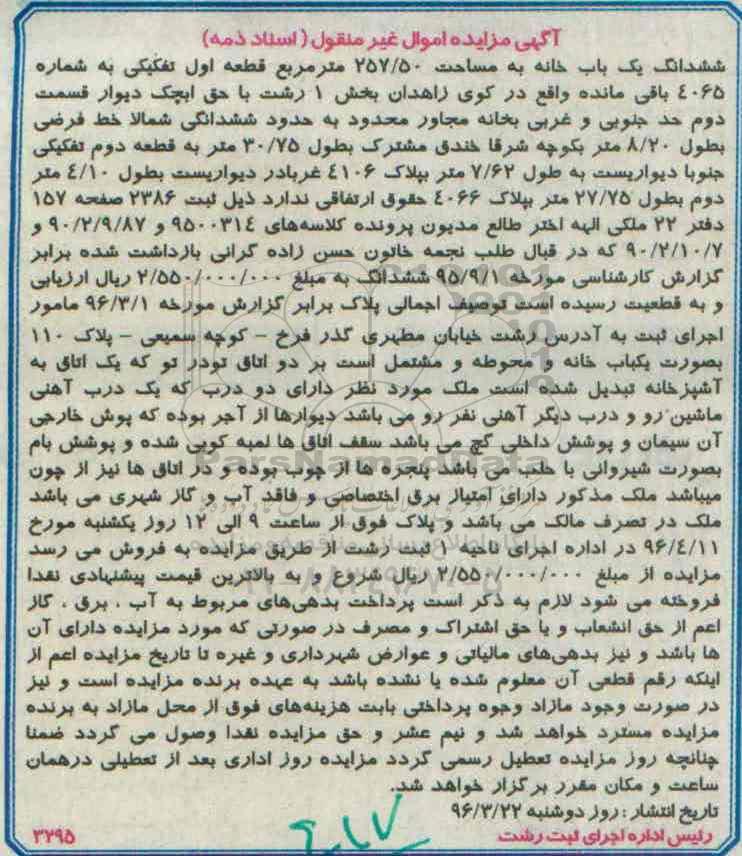 آگهی مزایده اموال غیر منقول (اسناد ذمه)
ششدانگ یک باب خانه به مساحت ۲۵۷/۵۰ مترمربع قطعه اول تفکیکی به شماره
۴۰۶۵ باقی مانده واقع در کوی زاهدان بخش ۱ رشت با حق ابچک دیوار قسمت
دوم حد جنوبی و غربی بخانه مجاور محدود به حدود ششدانگی شمالا خط فرضی
بطول ۸/۲۰ متر بکوچه شرقا خندق مشترک بطول ۳۰/۷۵ متر به قطعه دوم تفکیکی
جنوبا دیواریست به طول ۷/۶۲ متر بپلاک ۴۱۰۶ غربادر دیواریست بطول ۴/۱۰ متر
دوم بطول ۲۷/۷۵ متر بپلاک ۴۰۶۶ حقوق ارتفاقی ندارد ذیل ثبت ۲۳۸۶ صفحه ۱۵۷
دفتر ۲۲ ملکی الهه اختر طالع مدیون پرونده کلاسه‌های ۹۵۰۰۳۱۴ و ۹۰/۲/۹/۸۷ و
۹۰/۲/۱۰/۷ که در قبال طلب نجمه خاتون حسن زاده گرانی بازداشت شده برابر
گزارش کارشناسی مورخه ۹۵/۹/۱۰ ششدانگ به مبلغ ۲/۵۵۰/۰۰۰/۰۰۰ ریال ارزیابی
و به قطعیت رسیده است توصیف اجمالی پلاک برابر گزارش مورخه ۹۶/۳/۱ مامور
اجرای ثبت به آدرس رشت خیابان مطهری گذر فرخ – کوچه سمیعی – پلاک ۱۱۰
بصورت یکباب خانه و محوطه و مشتمل است بر دو اتاق تودر تو که یک اتاق به
آشپزخانه تبدیل شده است ملک مورد نظر دارای دو درب که یک درب آهنی
ماشین رو و درب دیگر آهنی نفر رو می باشد دیوارها از آجر بوده که پوش خارجی
آن سیمان و پوشش داخلی گچ می باشد سقف اتاق ها لمبه کوبی شده و پوشش بام
بصورت شیروانی با حلب می باشد پنجره ها از چوب بوده و در اتاق ها نیز از چون
میباشد ملک مذکور دارای امتیاز برق اختصاصی و فاقد آب و گاز شهری می باشد
ملک در تصرف مالک می باشد و پلاک فوق از ساعت ۹ الی ۱۲ روز یکشنبه مورخ
۹۶/۴/۱۱ در اداره اجرای ناحیه ۱ ثبت رشت از طریق مزایده به فروش می رسد
مزایده از مبلغ ۲/۵۵۰/۰۰۰/۰۰۰ ریال شروع و به بالاترین قیمت پیشنهادی نقدا
فروخته می شود لازم به ذکر است پرداخت بدهی‌های مربوط به آب ، برق ، گاز
اعم از حق انشعاب و یا حق اشتراک و مصرف در صورتی که مورد مزایده دارای آن
ها باشد و نیز بدهی‌های مالیاتی و عوارض شهرداری و غیره تا تاریخ مزایده اعم از
اینکه رقم قطعی آن معلوم شده یا نشده باشد به عهده برنده مزایده است و نیز
در صورت وجود مازاد وجوه پرداختی بابت هزینه‌های فوق از محل مازاد به برنده
مزایده مسترد خواهد شد و نیم عشر و حق مزایده نقدا وصول می گردد ضمنا
چنانچه روز مزایده تعطیل رسمی گردد مزایده روز اداری بعد از تعطیلی درهمان
ساعت و مکان مقرر برگزار خواهد شد.
تاریخ انتشار : روز دوشنبه ۹۶/۳/۲۲
رئیس اداره اجرای ثبت رشت
۳۲۹۵
ParsNamadData